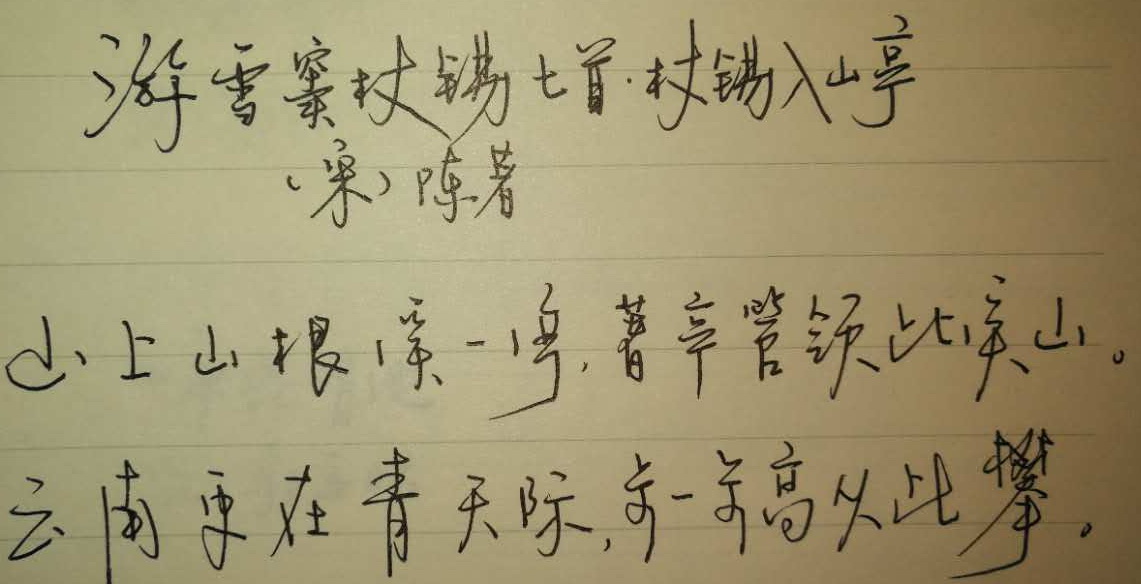 游雪窦杖锡七首·杖锡入山亭
（宋）陈著
山上山根溪一湾，着亭管领此溪山。
云南更在青天际，步一步高从此攀。